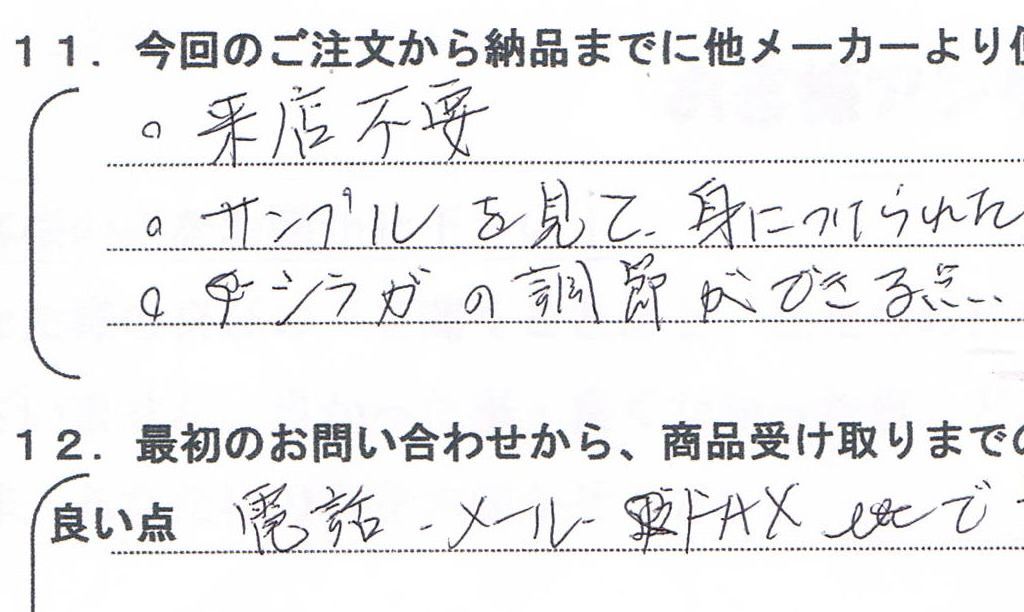 11. 今回のご注文から納品までに他メーカーより
。来店不要
。サンプルを見て、身につけられた
。シラガの調節ができる点、
12. 最初のお問い合わせから、商品受け取りまでの
良い点 電話・メール・FAX etcで